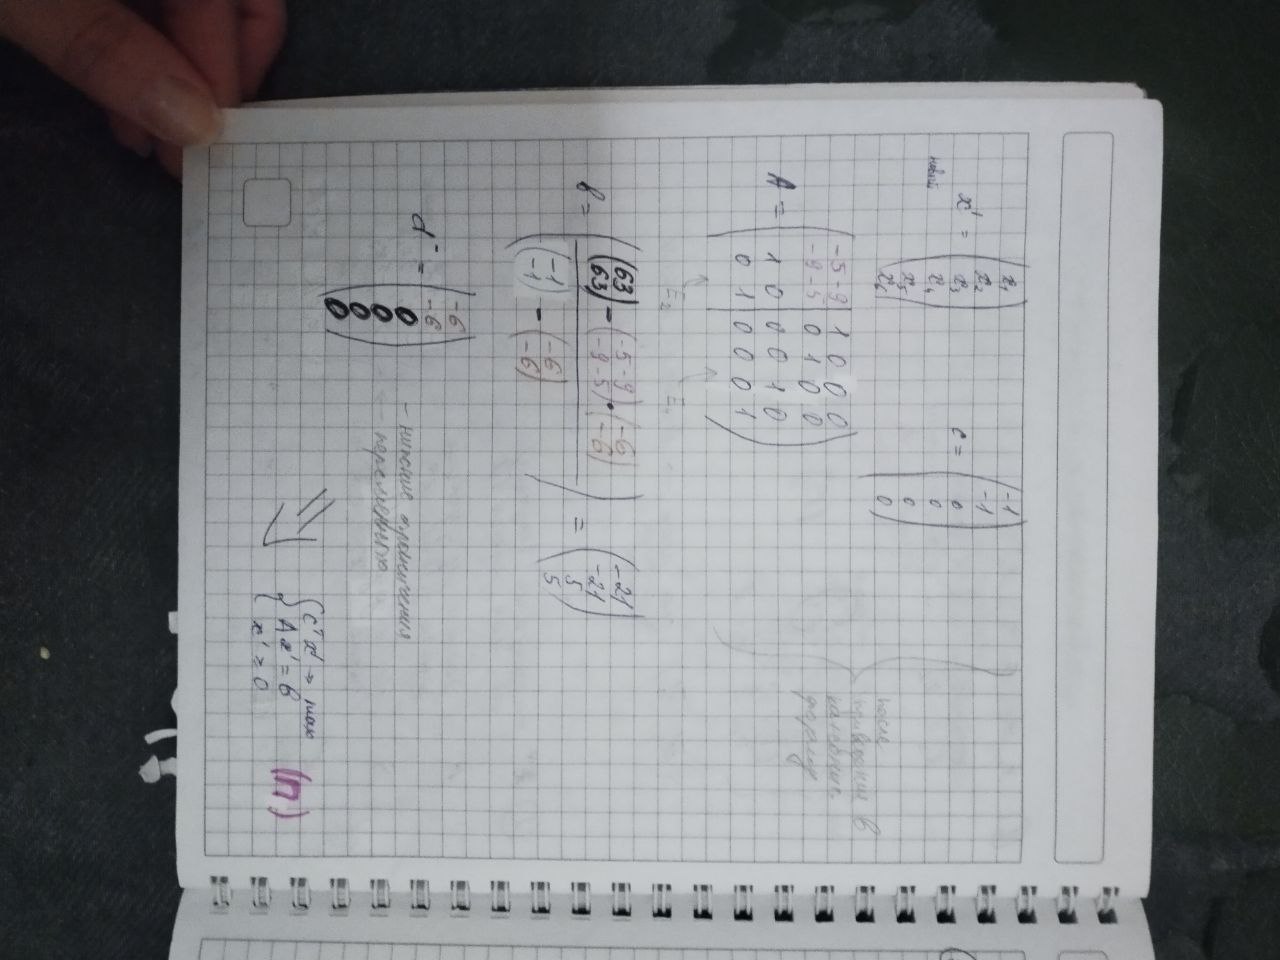 x' = (x₁ x₂ x₃ x₄ x₅ x₆)
новый
c = (-1 -1 0 0 0 0)
после
приведения в
каноннич
форму
A =
-5 -9 | 1 0 0 0
-9 -5 | 0 1 0 0
1 0 | 0 0 1 0
0 1 | 0 0 0 1
E₂
b = ((63 63) - (-5 -9 -9 -5) · (-6 -6) (-1 -1) - (-6 -6)) = (-21 -21 5 5)
d⁻ = (-6 -6 0 0 0 0)
- нижние ограничения
- переменных
{ cᵀx' → max
Ax' = b
x' ≥ 0
(П)